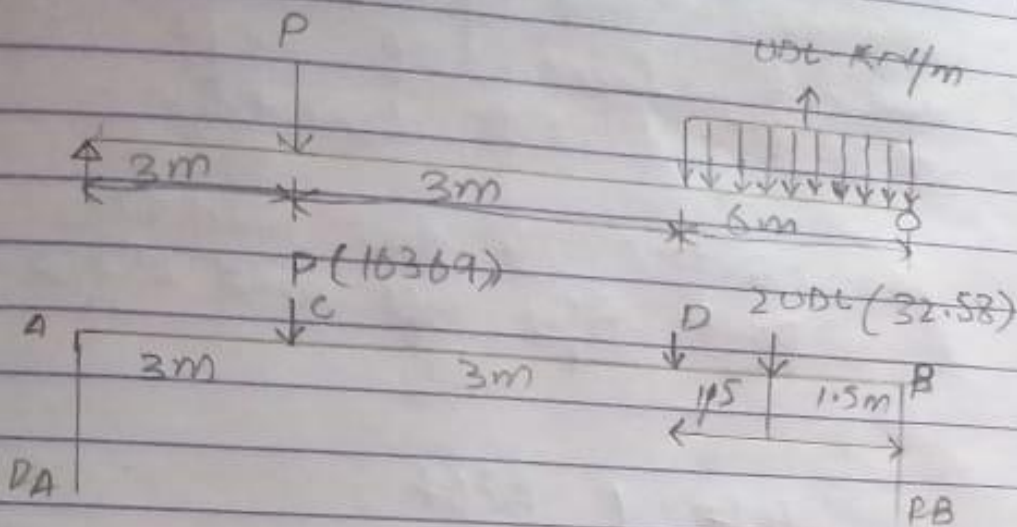 P
UDL KN/m
3m 3m 6m
P (16369)
A C D 2UDL (32.58)
3m 3m 1.5 1.5m B
DA RB